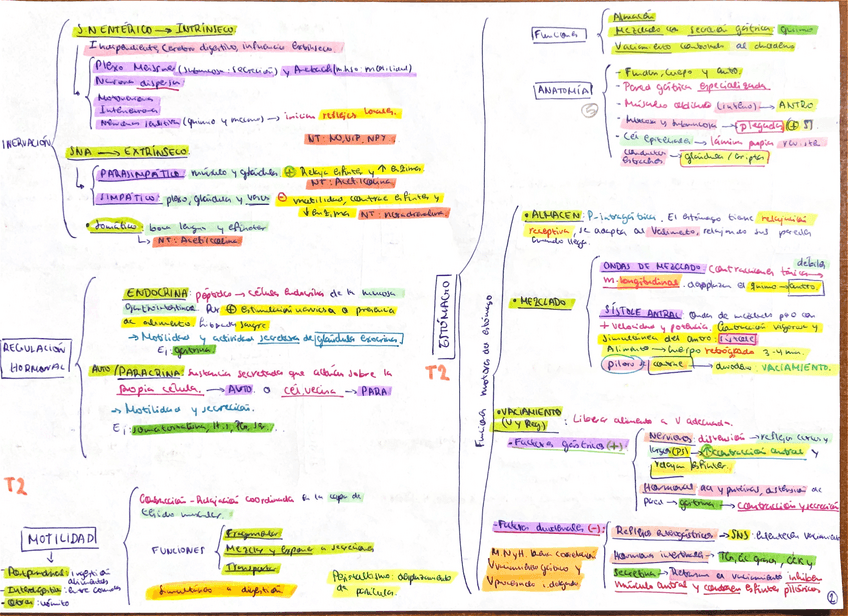 S.N ENTÉRICO → INTRÍNSECO
Independiente, Cerebro digestivo, influencia extrínseca.
Plexo Meissner (submucoso: secreción) y Auerbach (m.liso: motilidad)
Neurona dispersa
Motoneurona
Interneurona
Neurona sensitiva (químico y mecano) → inician reflejos locales.
NT: NO, VIP, NPY
INERVACIÓN
SNA → EXTRÍNSECO
PARASIMPÁTICO: músculo y glándulas. ⊕ Relaja esfínter y ↑ enzimas
NT: Acetilcolina
SIMPÁTICO: plexo, glándula y vasos ⊖ motilidad, contrae esfínter y
↓ enzima NT: noradrenalina
• Somático: boca lengua y esfínter
↳ NT: Acetilcolina
REGULACIÓN
HORMONAL
ENDOCRINA: péptidos → células endocrinas de la mucosa
gastrointestinal. Por ⊕ estimulación nerviosa o presencia
de alimento. sangre
→ Motilidad y actividad secretora de glándulas exocrinas
Ej: gastrina
AUTO/PARACRINA: Sustancia secretadas que actúan sobre la
propia célula → AUTO o cél. vecina → PARA
→ Motilidad y secreción.
Ej: somatostatina, H
T2
MOTILIDAD
Postprandial: ingestión
alimentos
Interdigestiva: entre comidas
- Otras: vómito
Contracción - Relajación coordinada en la capa de
tejido muscular.
FUNCIONES
Fragmentar
Mezclar y exponer a secreciones
Transportar
digestión
Peristaltismo: desplazamiento
de partículas.
ESTÓMAGO
T2
Funciones
Almacén
Mezclado con secreción gástrica: Quimo
Vaciamiento controlado al duodeno
ANATOMÍA
- Fundus, cuerpo y antro.
- Pared gástrica especializada.
- Músculo oblicuo (interno) → ANTRO
- Mucosa y submucosa → plegadas (+ S)
- Cél epiteliales → lámina propia
conductos
estrechos → glándulas/criptas
Función motora del estómago
• ALMACEN: P. intragástrica. El estómago tiene relajación
receptiva, se adapta al V alimento, relajando sus paredes
cuando llega.
• MEZCLADO
ONDAS DE MEZCLADO: Contracciones tónicas débiles
m. longitudinal. desplazan el quimo → antro.
SÍSTOLE ANTRAL: Onda de mezclado pero con
+ velocidad y potencia. Contracción vigorosa y
simultánea del antro: sístole
Alimento → cuerpo rebogada 3-4 mm.
píloro contrae → duodeno: VACIAMIENTO.
• VACIAMIENTO: Libera alimento a V adecuada.
(V y Reg)
- Factores gástricos (+)
Nerviosos: distensión → reflejos cortos y
largos (PS) → contracción antral y
relajan esfínter.
Hormonal: aa y proteínas, distensión de
pared → gastrina → contracción y secreción
- Factores duodenales (-):
Reflejos enterogástricos → SNS: enlentecen vaciamiento
Hormonas intestinales → CCK y
Secretina → Retrasan el vaciamiento inhiben
músculo antral y contraen esfínter pilórico
M. N y H. buena correlación
V vaciamiento gástrico y
V procesado i. delgado
1